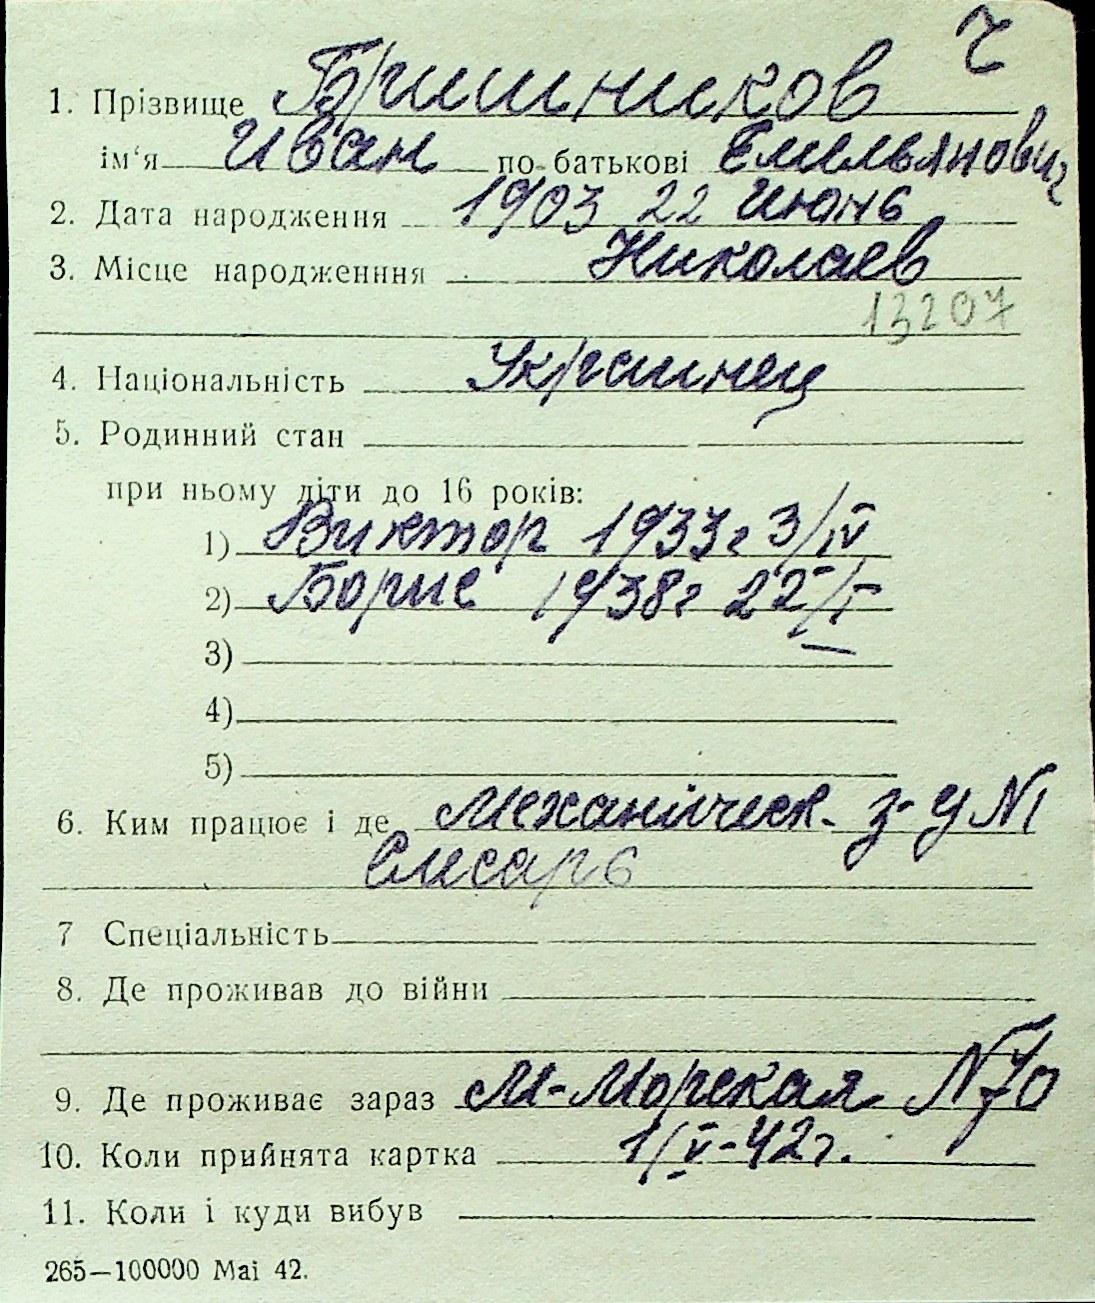 ч
1. Прізвище Бришников
ім'я Иван по батькові Емильянович
2. Дата народження 1903 22 июнь
3. Місце народженння Николаев
13207
4. Національність Украинец
5. Родинний стан
при ньому діти до 16 років:
1) Виктор 1933г 3/IV
2) Борис 1938г 22/I
3)
4)
5)
6. Ким працює і де механическ. з-д N1
Слесарь
7 Спеціальність
8. Де проживав до війни
9. Де проживає зараз М-Морская N70
10. Коли прийнята картка 1/V-42г.
11. Коли і куди вибув
265—100000 Mai 42.